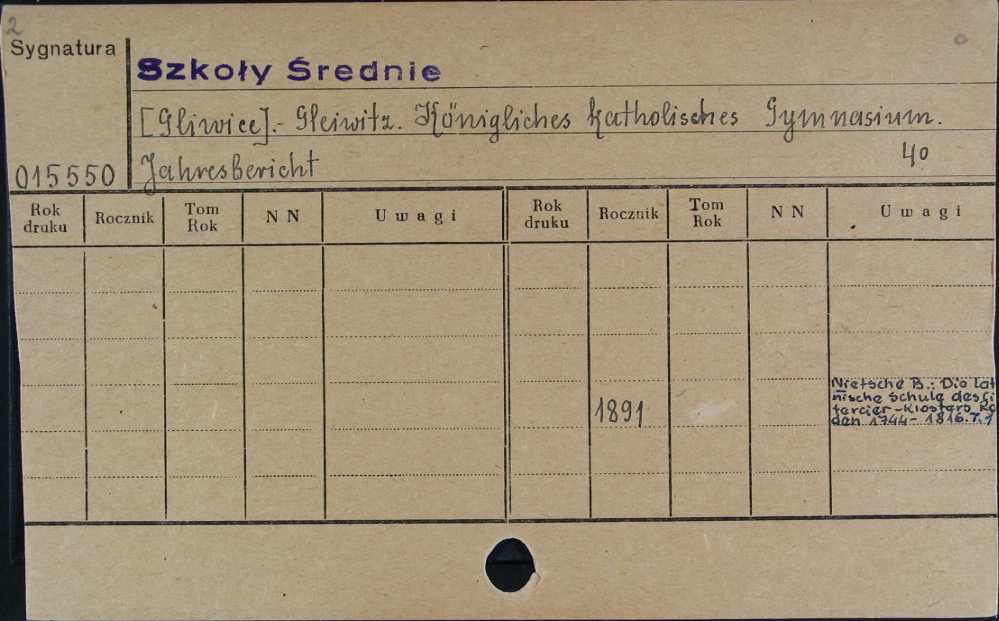 2
Sygnatura
Szkoły Średnie
[Gliwice].- Gleiwitz. Königliches Katholisches Gymnasium.
015550 Jahresbericht 4o
Rok druku Rocznik Tom Rok N N Uwagi Rok druku Rocznik Tom Rok N N Uwagi
1891
Nietsche B.: Die lat
nische Schule des Ci
tercier-Klosters Ra
den 1744-1816.T.1